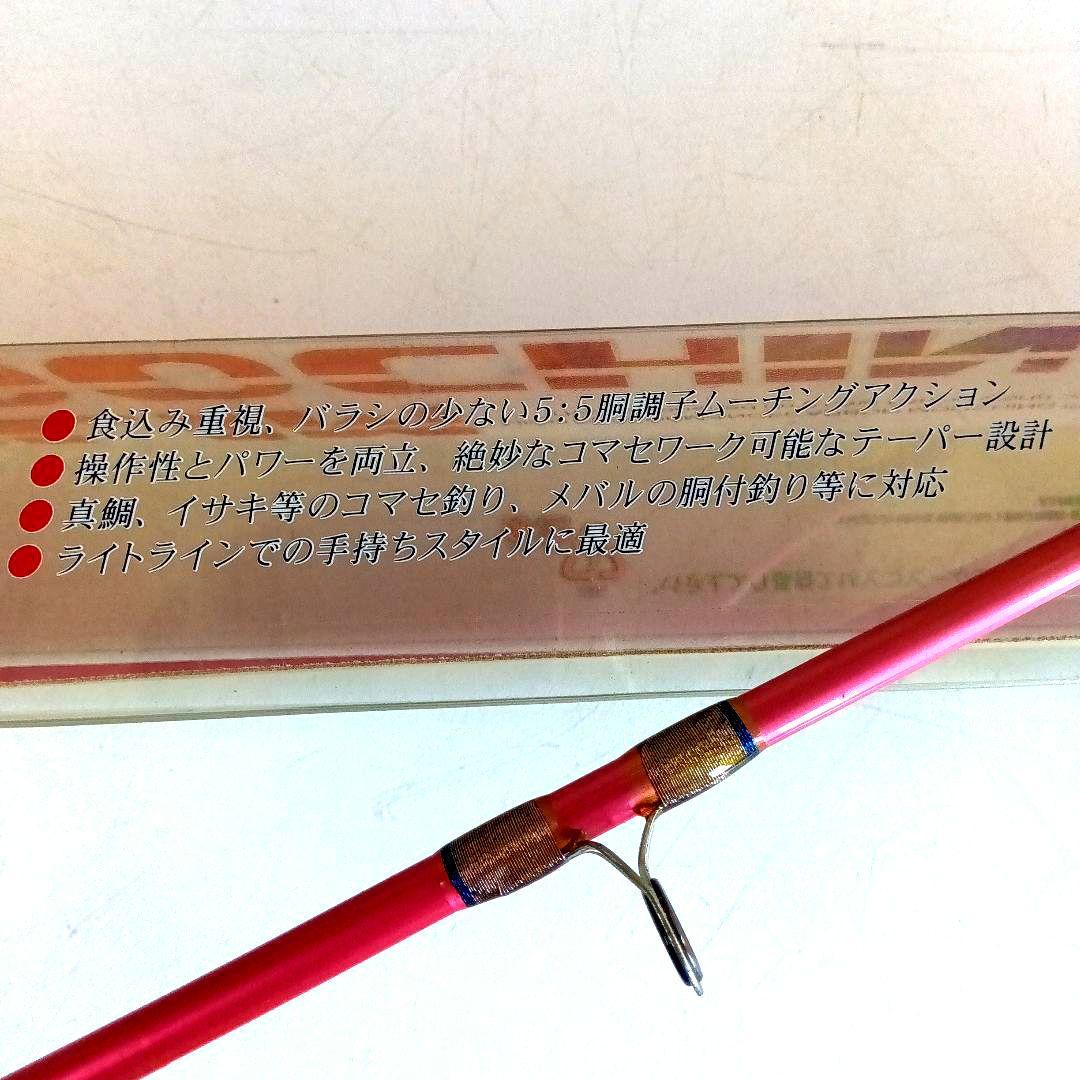 ● 食込み重視、バラシの少ない5:5胴調子ムーチングアクション
● 操作性とパワーを両立、絶妙なコマセワーク可能なテーパー設計
● 真鯛、イサキ等のコマセ釣り、メバルの胴付釣り等に対応
● ライトラインでの手持ちスタイルに最適